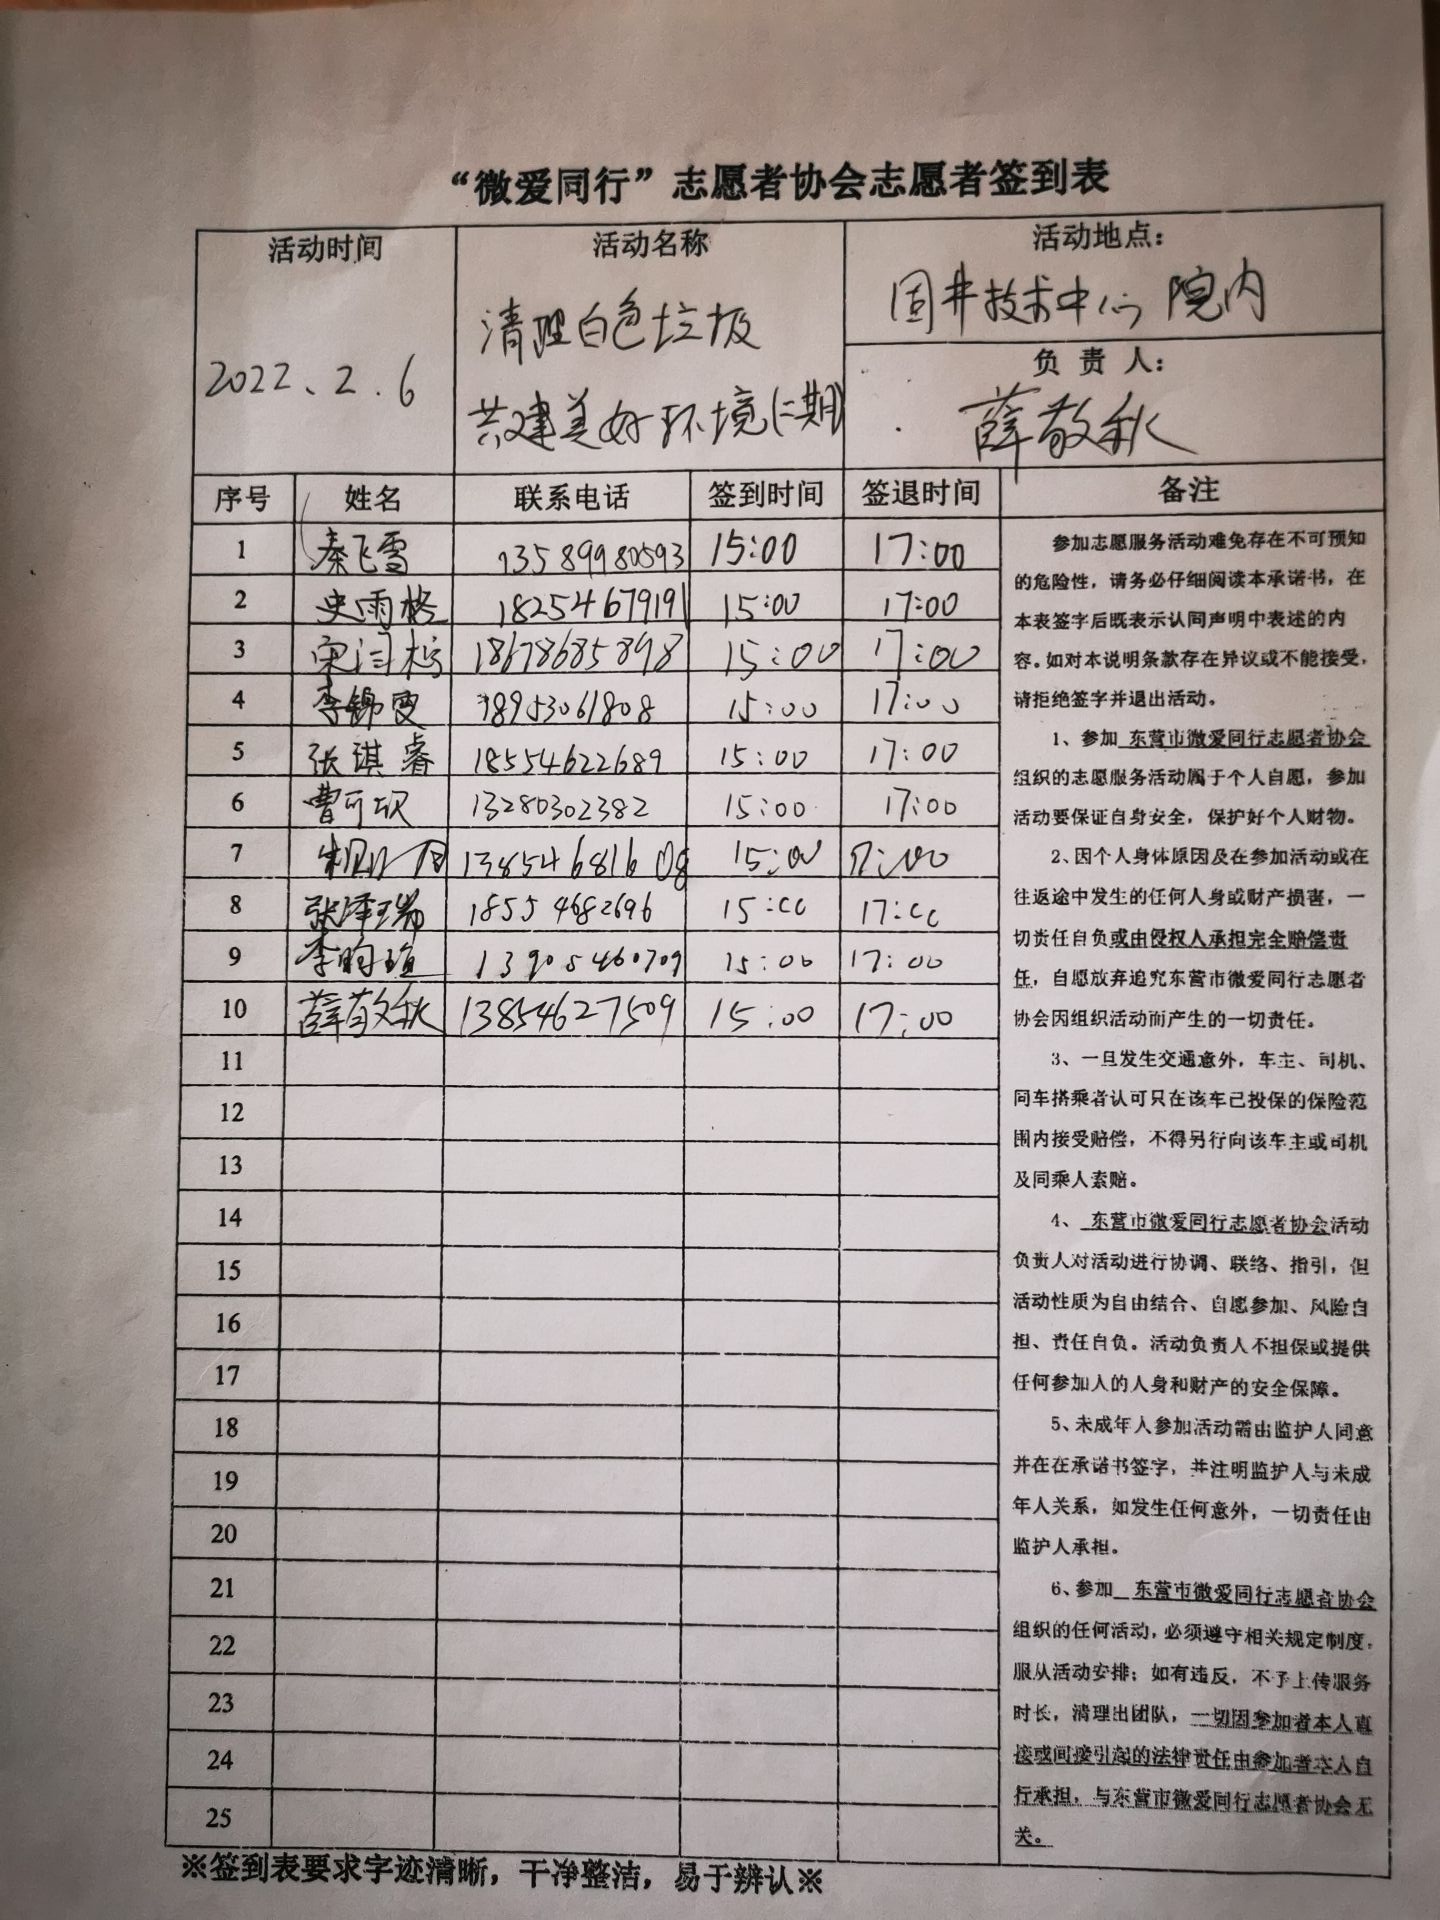 “微爱同行”志愿者协会志愿者签到表
活动时间 活动名称 活动地点：
2022、2.6 清理白色垃圾 固井技术中心院内
共建美好环境(二期) 负责人：
薛敬秋
序号 姓名 联系电话 签到时间 签退时间 备注
1 秦飞雪 13589980593 15:00 17:00
2 史雨格 18254679191 15:00 17:00
3 18678685898 15:00 17:00
4 李锦雯 18953061808 15:00 17:00
5 张琪睿 18554622689 15:00 17:00
6 曹可 13280302382 15:00 17:00
7 15:00 17:00
8 张泽瑞 18554682696 15:00 17:00
9 李昀瑄 13905460709 15:00 17:00
10 薛敬秋 13854627509 15:00 17:00
11
12
13
14
15
16
17
18
19
20
21
22
23
24
25
参加志愿服务活动难免存在不可预知
的危险性，请务必仔细阅读本承诺书，在
本表签字后既表示认同声明中表述的内
容。如对本说明条款存在异议或不能接受，
请拒绝签字并退出活动。
1、参加 东营市微爱同行志愿者协会
组织的志愿服务活动属于个人自愿，参加
活动要保证自身安全，保护好个人财物。
2、因个人身体原因及在参加活动或在
往返途中发生的任何人身或财产损害，一
切责任自负或由侵权人承担完全赔偿责
任，自愿放弃追究东营市微爱同行志愿者
协会因组织活动而产生的一切责任。
3、一旦发生交通意外，车主、司机、
同车搭乘者认可只在该车已投保的保险范
围内接受赔偿，不得另行向该车主或司机
及同乘人索赔。
4、 东营市微爱同行志愿者协会活动
负责人对活动进行协调、联络、指引，但
活动性质为自由结合、自愿参加、风险自
担、责任自负。活动负责人不担保或提供
任何参加人的人身和财产的安全保障。
5、未成年人参加活动需由监护人同意
并在在承诺书签字，并注明监护人与未成
年人关系，如发生任何意外，一切责任由
监护人承担。
6、参加 东营市微爱同行志愿者协会
组织的任何活动，必须遵守相关规定制度，
服从活动安排；如有违反，不予上传服务
时长，清理出团队，一切因参加者本人直
接或间接引起的法律责任由参加者本人自
行承担，与东营市微爱同行志愿者协会无
关。
※签到表要求字迹清晰，干净整洁，易于辨认※